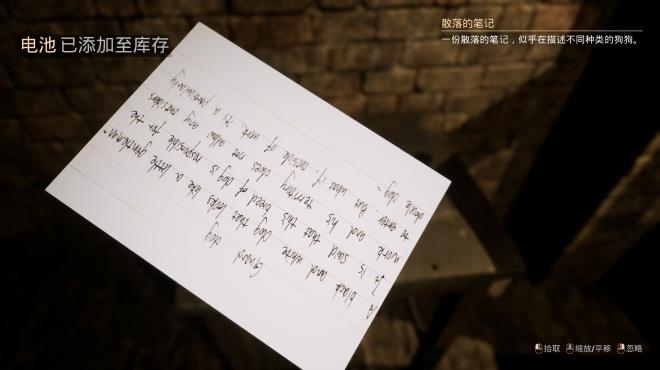 电池 已添加至库存
散落的笔记
一份散落的笔记，似乎在描述不同种类的狗狗。
Guard dog
A black and white dog that looks like a little gentleman~
It is said that this breed of dog is responsible for the
work and his territory does not allow any outsides
to enter. But what if, outside of work, is a particularly
docile dog~
拾取 缩放/平移 忽略